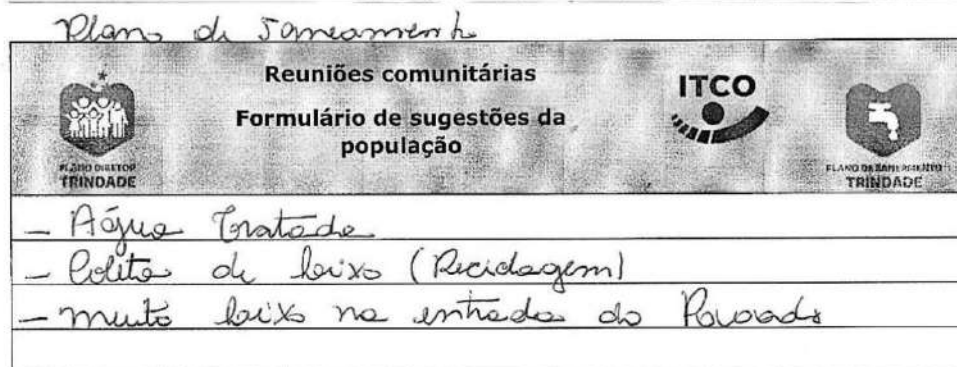 Plano de Saneamento
Reuniões comunitárias
Formulário de sugestões da
população
ITCO
PLANO DIRETOR
TRINDADE
PLANO DE SANEAMENTO
TRINDADE
- Água Tratada
- Colita de lixo (Reciclagem)
- muito lixo na entrada do Povoado